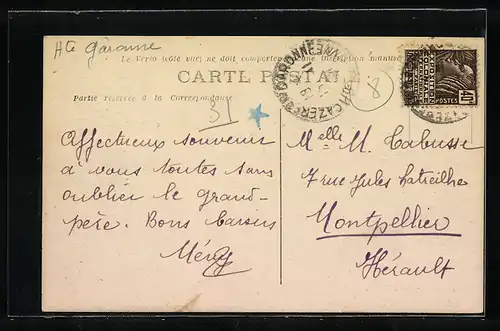 Hte Garonne
Le Verso (côté vue) ne doit comporter aucune indication manuscrite
CARTE POSTALE
Partie réservée à la Correspondance
8
31
Affectueux souvenir
à vous toutes sans
oublier le grand-
père. Bons baisers
Méry
POSTES
40
GARONNE
CAZÈRES
Melle M. Cabusse
7 rue Jules Latreilhe
Montpellier
Hérault